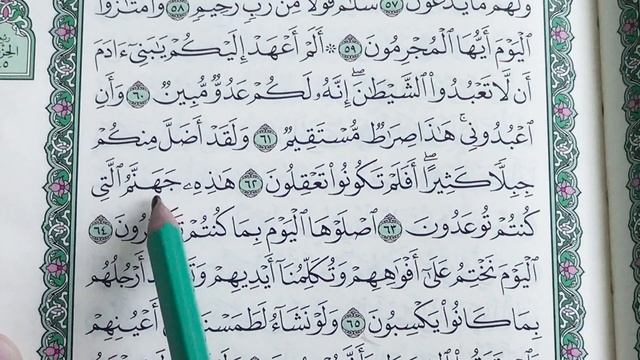 وَلَهُم مَّا يَدَّعُونَ ٥٧ سَلَٰمٌ قَوْلًا مِّن رَّبٍّ رَّحِيمٍ ٥٨ وَٱمْتَٰزُوا۟
ٱلْيَوْمَ أَيُّهَا ٱلْمُجْرِمُونَ ٥٩ ۞ أَلَمْ أَعْهَدْ إِلَيْكُمْ يَٰبَنِىٓ ءَادَمَ
أَن لَّا تَعْبُدُوا۟ ٱلشَّيْطَٰنَ ۖ إِنَّهُۥ لَكُمْ عَدُوٌّ مُّبِينٌ ٦٠ وَأَنِ
ٱعْبُدُونِى ۚ هَٰذَا صِرَٰطٌ مُّسْتَقِيمٌ ٦١ وَلَقَدْ أَضَلَّ مِنكُمْ
جِبِلًّا كَثِيرًا ۖ أَفَلَمْ تَكُونُوا۟ تَعْقِلُونَ ٦٢ هَٰذِهِۦ جَهَنَّمُ ٱلَّتِى
كُنتُمْ تُوعَدُونَ ٦٣ ٱصْلَوْهَا ٱلْيَوْمَ بِمَا كُنتُمْ ٦٤
ٱلْيَوْمَ نَخْتِمُ عَلَىٰٓ أَفْوَٰهِهِمْ وَتُكَلِّمُنَآ أَيْدِيهِمْ أَرْجُلُهُم
بِمَا كَانُوا۟ يَكْسِبُونَ ٦٥ وَلَوْ نَشَآءُ لَطَمَسْنَا أَعْيُنِهِمْ